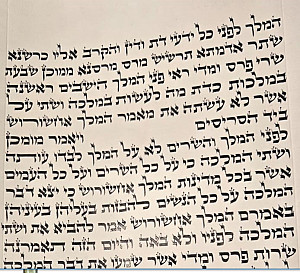 המלך לפני כל ידעי דת ודין והקרב אליו כרשנא
שתר אדמתא תרשיש מרס מרסנא ממוכן שבעת
שרי פרס ומדי ראי פני המלך הישבים ראשנה
במלכות כדת מה לעשות במלכה ושתי על
אשר לא עשתה את מאמר המלך אחשורוש
ביד הסריסים
ויאמר מומכן
לפני המלך והשרים לא על המלך לבדו עותה
ושתי המלכה כי על כל השרים ועל כל העמים
אשר בכל מדינות המלך אחשורוש כי יצא דבר
המלכה על כל הנשים להבזות בעליהן בעיניהן
באמרם המלך אחשורוש אמר להביא את ושתי
המלכה לפניו ולא באה והיום הזה תאמרנה
שרות פרס ומדי אשר שמעו את דבר המלכה